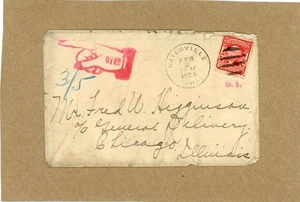 WATERVILLE
FEB
2
1904
3/5
Mr. Fred W. Higginson
c/o General Delivery,
Chicago,
Illinois